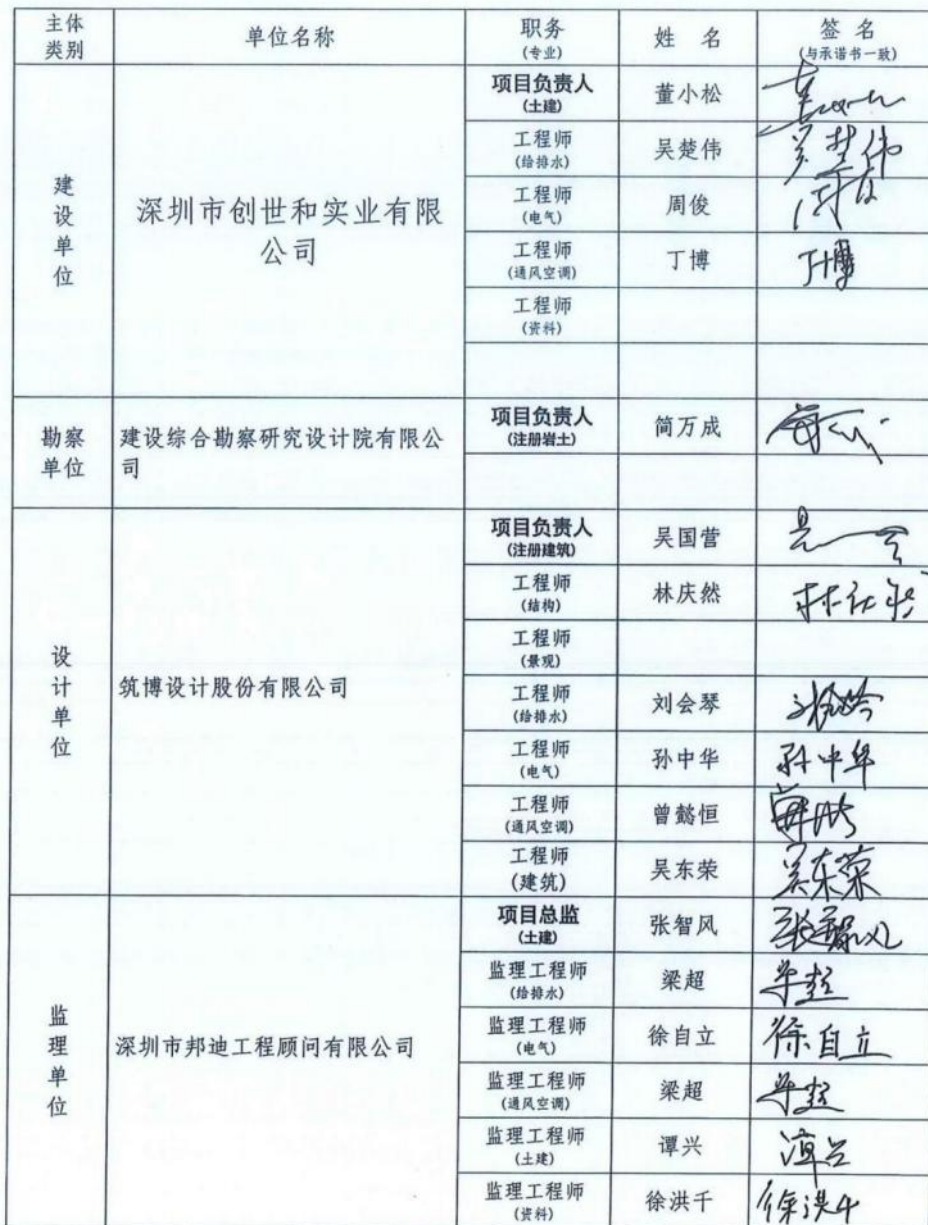 主体
类别
单位名称
职务
(专业)
姓 名
签 名
(与承诺书一致)
建设单位
深圳市创世和实业有限
公司
项目负责人
(土建)
董小松
工程师
(给排水)
吴楚伟
吴楚伟
工程师
(电气)
周俊
工程师
(通风空调)
丁博
丁博
工程师
(资料)
勘察
单位
建设综合勘察研究设计院有限公
司
项目负责人
(注册岩土)
简万成
设计单位
筑博设计股份有限公司
项目负责人
(注册建筑)
吴国营
工程师
(结构)
林庆然
工程师
(景观)
工程师
(给排水)
刘会琴
工程师
(电气)
孙中华
孙中华
工程师
(通风空调)
曾懿恒
工程师
(建筑)
吴东荣
吴东荣
监理单位
深圳市邦迪工程顾问有限公司
项目总监
(土建)
张智风
监理工程师
(给排水)
梁超
监理工程师
(电气)
徐自立
徐自立
监理工程师
(通风空调)
梁超
监理工程师
(土建)
谭兴
监理工程师
(资料)
徐洪千
徐洪千